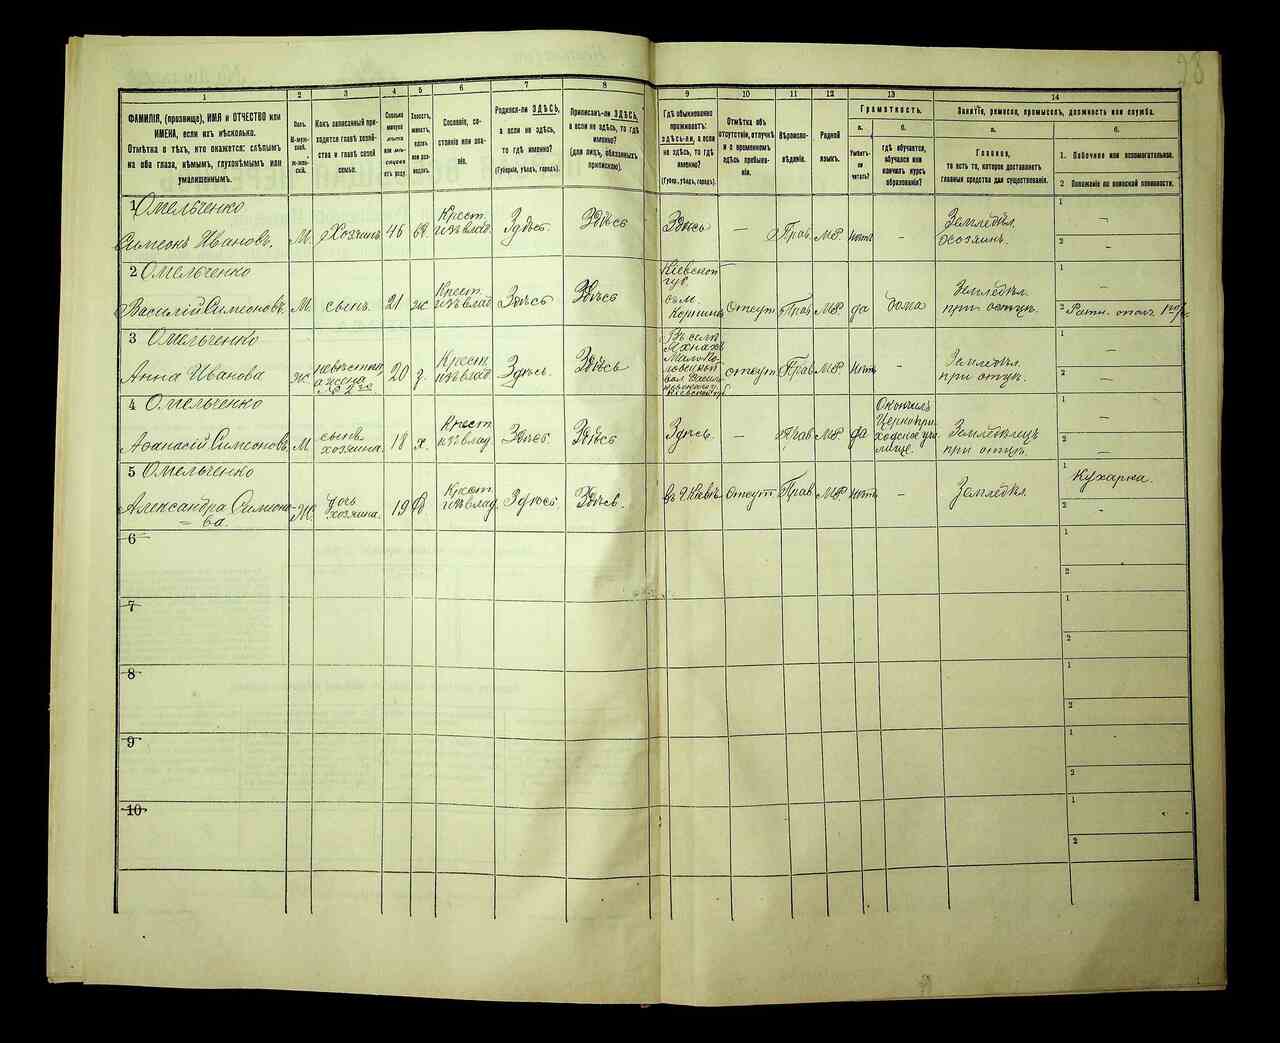 28
1
2
3
4
5
6
7
8
9
10
11
12
13
14
ФАМИЛІЯ, (прозвище), ИМЯ и ОТЧЕСТВО или
ИМЕНА, если ихъ нѣсколько.
Отмѣтка о тѣхъ, кто окажется: слѣпымъ
на оба глаза, нѣмымъ, глухонѣмымъ или
умалишеннымъ.
Полъ.
М-муж-
ской.
ж-жен-
скій.
Какъ записанный при-
ходится главѣ хозяй-
ства и главѣ своей
семьи.
Сколько
минуло
лѣтъ
или мѣ-
сяцевъ
отъ роду.
Холостъ,
женатъ,
вдовъ
или раз-
веденъ.
Сословіе, со-
стояніе или зва-
ніе.
Родился-ли ЗДѢСЬ,
а если не здѣсь,
то гдѣ именно?
(Губернія, уѣздъ, городъ).
Приписанъ-ли ЗДѢСЬ,
а если не здѣсь, то гдѣ
именно?
(для лицъ, обязанныхъ
припискою).
Гдѣ обыкновенно
проживаетъ:
здѣсь-ли, а если
не здѣсь, то гдѣ
именно?
(Губер., уѣздъ, городъ).
Отмѣтка объ
отсутствіи, отлучкѣ
и о временномъ
здѣсь пребыва-
ніи.
Вѣроиспо-
вѣданіе.
Родной
языкъ.
Грамотность.
а.
Умѣетъ-
ли
читать?
б.
гдѣ обучается,
обучался или
кончилъ курсъ
образованія?
Занятіе, ремесло, промыселъ, должность или служба.
а.
Главное,
то есть то, которое доставляетъ
главныя средства для существованія.
б.
1. Побочное или вспомогательное.
2 Положеніе по воинской повинности.
1 Омельченко
Симеонъ Ивановъ. М. Хозяинъ 46 Крест. изъ влад. Здѣсь Здѣсь Здѣсь — Прав. МР нѣтъ — Земледѣл. хозяинъ.
1 —
2 —
2 Омельченко
Василій Симеоновъ М. сынъ 21 ж Крест. изъ влад Здѣсь Здѣсь
Кіевской
губ.
отсут Прав МР да дома Земледѣл. при отцѣ.
1 —
2 Ратн. ополч. 1го
3 Омельченко
Анна Иванова ж. невѣстка а жена № 2го 20 з. Крест изъ влад Здѣсь. Здѣсь
Въ селѣ
отсут Прав МР нѣтъ — Земледѣл. при отцѣ.
1 —
2 —
4 Омельченко
Афанасій Симеоновъ М сынъ хозяина. 18 х. Крест изъ влад Здѣсь Здѣсь Здѣсь. — Прав МР да
Окончилъ
Церк.при
ходское учи
лище.
Земледѣлецъ
при отцѣ.
1 —
2 —
5 Омельченко
Александра Симеоно- Ж. дочь хозяина. 19 Крест. изъ влад. Здѣсь Здѣсь. въ г. Кіевѣ Отсут Прав. МР нѣтъ — Земледѣл.
=ва.
1 Кухарка.
2 —
6
1
2
7
1
2
8
1
2
9
1
2
10
1
2